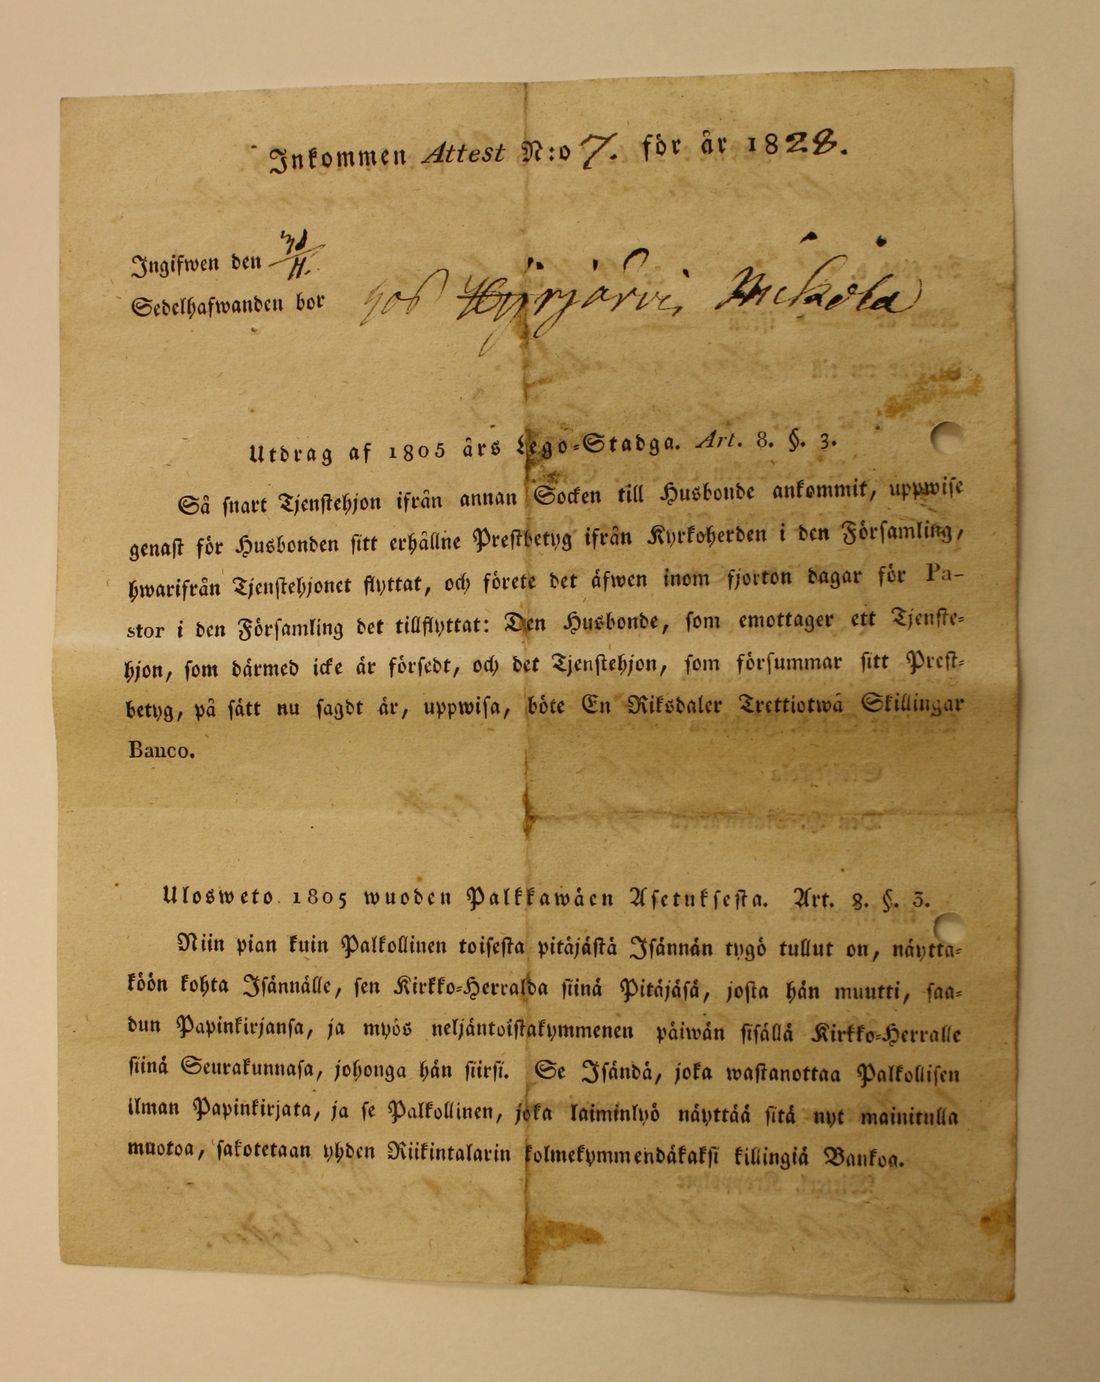 Inkommen Attest N:o 7. för år 1828.
Ingifwen den
Sedelhafwanden bor hos Kyrjärvi Mickola
Utdrag af 1805 års Lego-Stadga. Art. 8. §. 3.
Så snart Tjenstehjon ifrån annan Socken till Husbonde ankommit, uppwise
genast för Husbonden sitt erhållne Prestbetyg ifrån Kyrkoherden i den Församling,
hwarifrån Tjenstehjonet flyttat, och förete det äfwen inom fjorton dagar för Pa-
stor i den Församling det tillflyttat: Den Husbonde, som emottager ett Tjenste-
hjon, som därmed icke är försedt, och det Tjenstehjon, som försummar sitt Prest-
betyg, på sätt nu sagdt är, uppwisa, böte En Riksdaler Trettiotwå Skillingar
Banco.
Ulosweto 1805 wuoden Palkkawäen Asetuksesta. Art. 8. §. 3.
Niin pian kuin Palkollinen toisesta pitäjästä Isännän tygö tullut on, näyttä-
köön kohta Isännälle, sen Kirkko-Herralda siinä Pitäjäsä, josta hän muutti, saa-
dun Papinkirjansa, ja myös neljäntoistakymmenen päiwän sisällä Kirkko-Herralle
siinä Seurakunnasa, johonga hän siirsi. Se Isändä, joka wastanottaa Palkollisen
ilman Papinkirjata, ja se Palkollinen, joka laiminlyö näyttää sitä nyt mainitulla
muotoa, sakotetaan yhden Riikintalarin kolmekymmendäkaksi killingiä Bankoa.